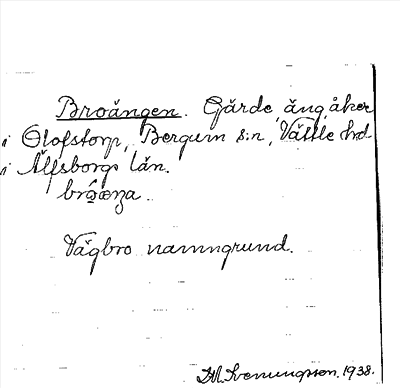 Broängen. Gärde, äng, åker
i Olofstorp, Bergum s:n, Vättle hd
i Älfsborgs län.
Vägbro namngrund.
Svenungsson. 1938.